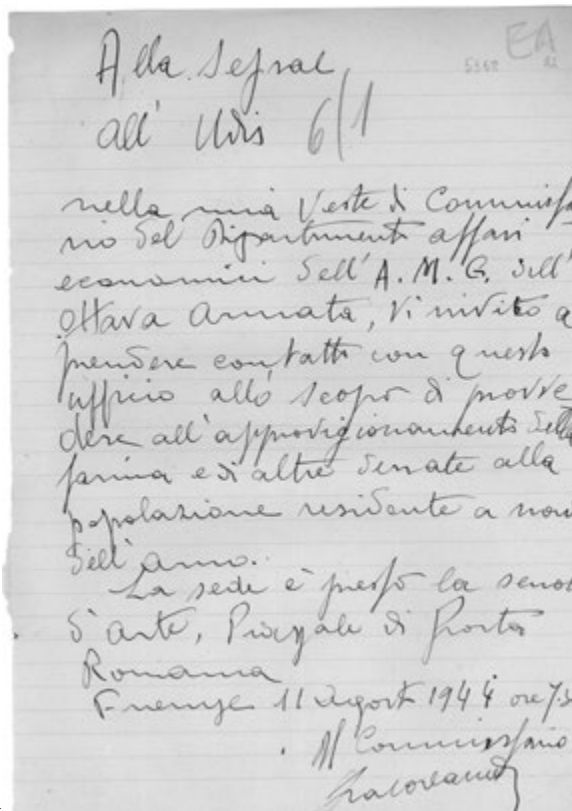 EA
Alla Sepral
all' Udis 6/1
nella mia Veste di Commissa
rio del Dipartimento affari
economici dell' A. M. G. dell'
Ottava Armata, Vi invito a
prendere contatti con questo
ufficio allo scopo di provve
dere all'approvigionamento della
farina e di altre derrate alla
popolazione residente a nord
dell' Arno.
La sede è presso la scuola
d'Arte, Piazzale di Porta
Romana
Firenze 11 Agosto 1944 ore 7.30
Il Commissario